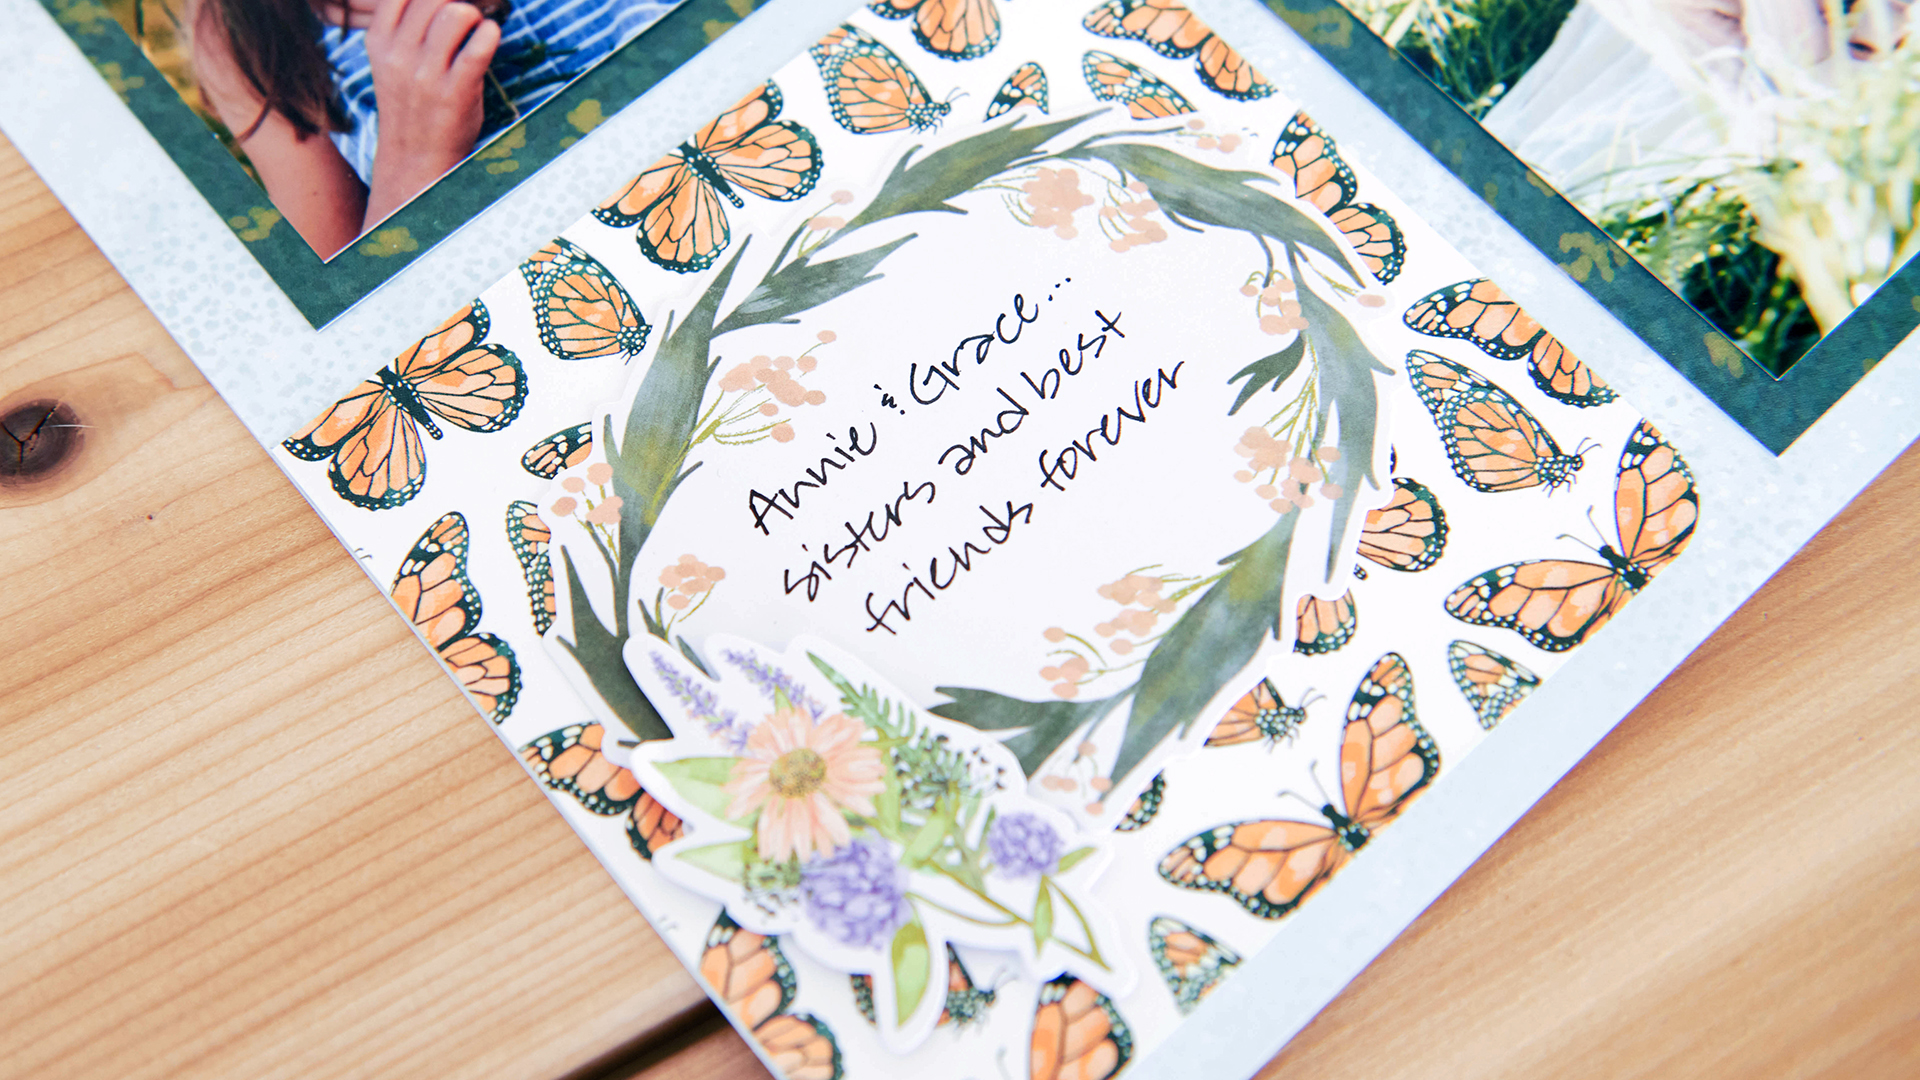 Annie & Grace...
sisters and best
friends forever